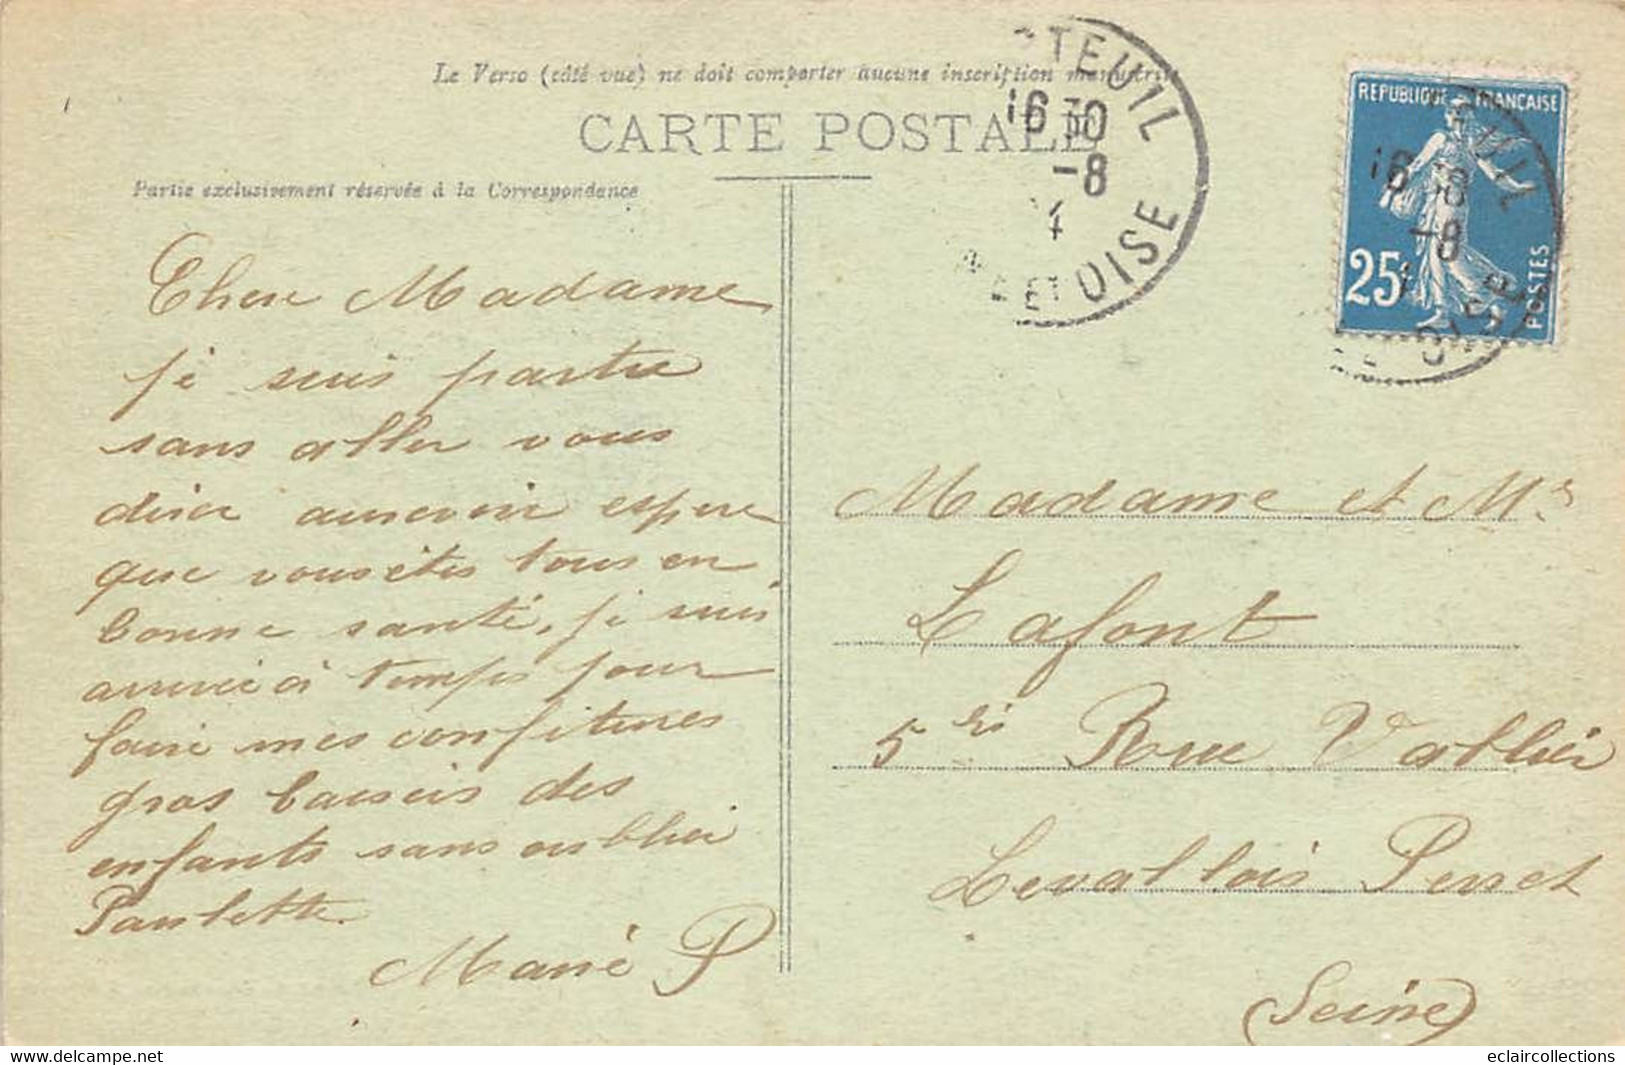 Le Verso (côté vue) ne doit comporter aucune inscription manuscrite
CARTE POSTALE
Partie exclusivement réservée à la Correspondance
TEUIL
16 30
-8
ET OISE
REPUBLIQUE FRANÇAISE
25c
POSTES
16
-8
OISE
Chere Madame
je suis partie
sans aller vous
dire aurevoir espere
que vous êtes tous en
bonne santé, je suis
arrivée à temps pour
faire mes confitures
gros baisers des
enfants sans oublier
Paulette.
Marie P
Madame et Mr
Lafont
5 Rue Vallier
Levallois Perret
(Seine)
eclaircollections